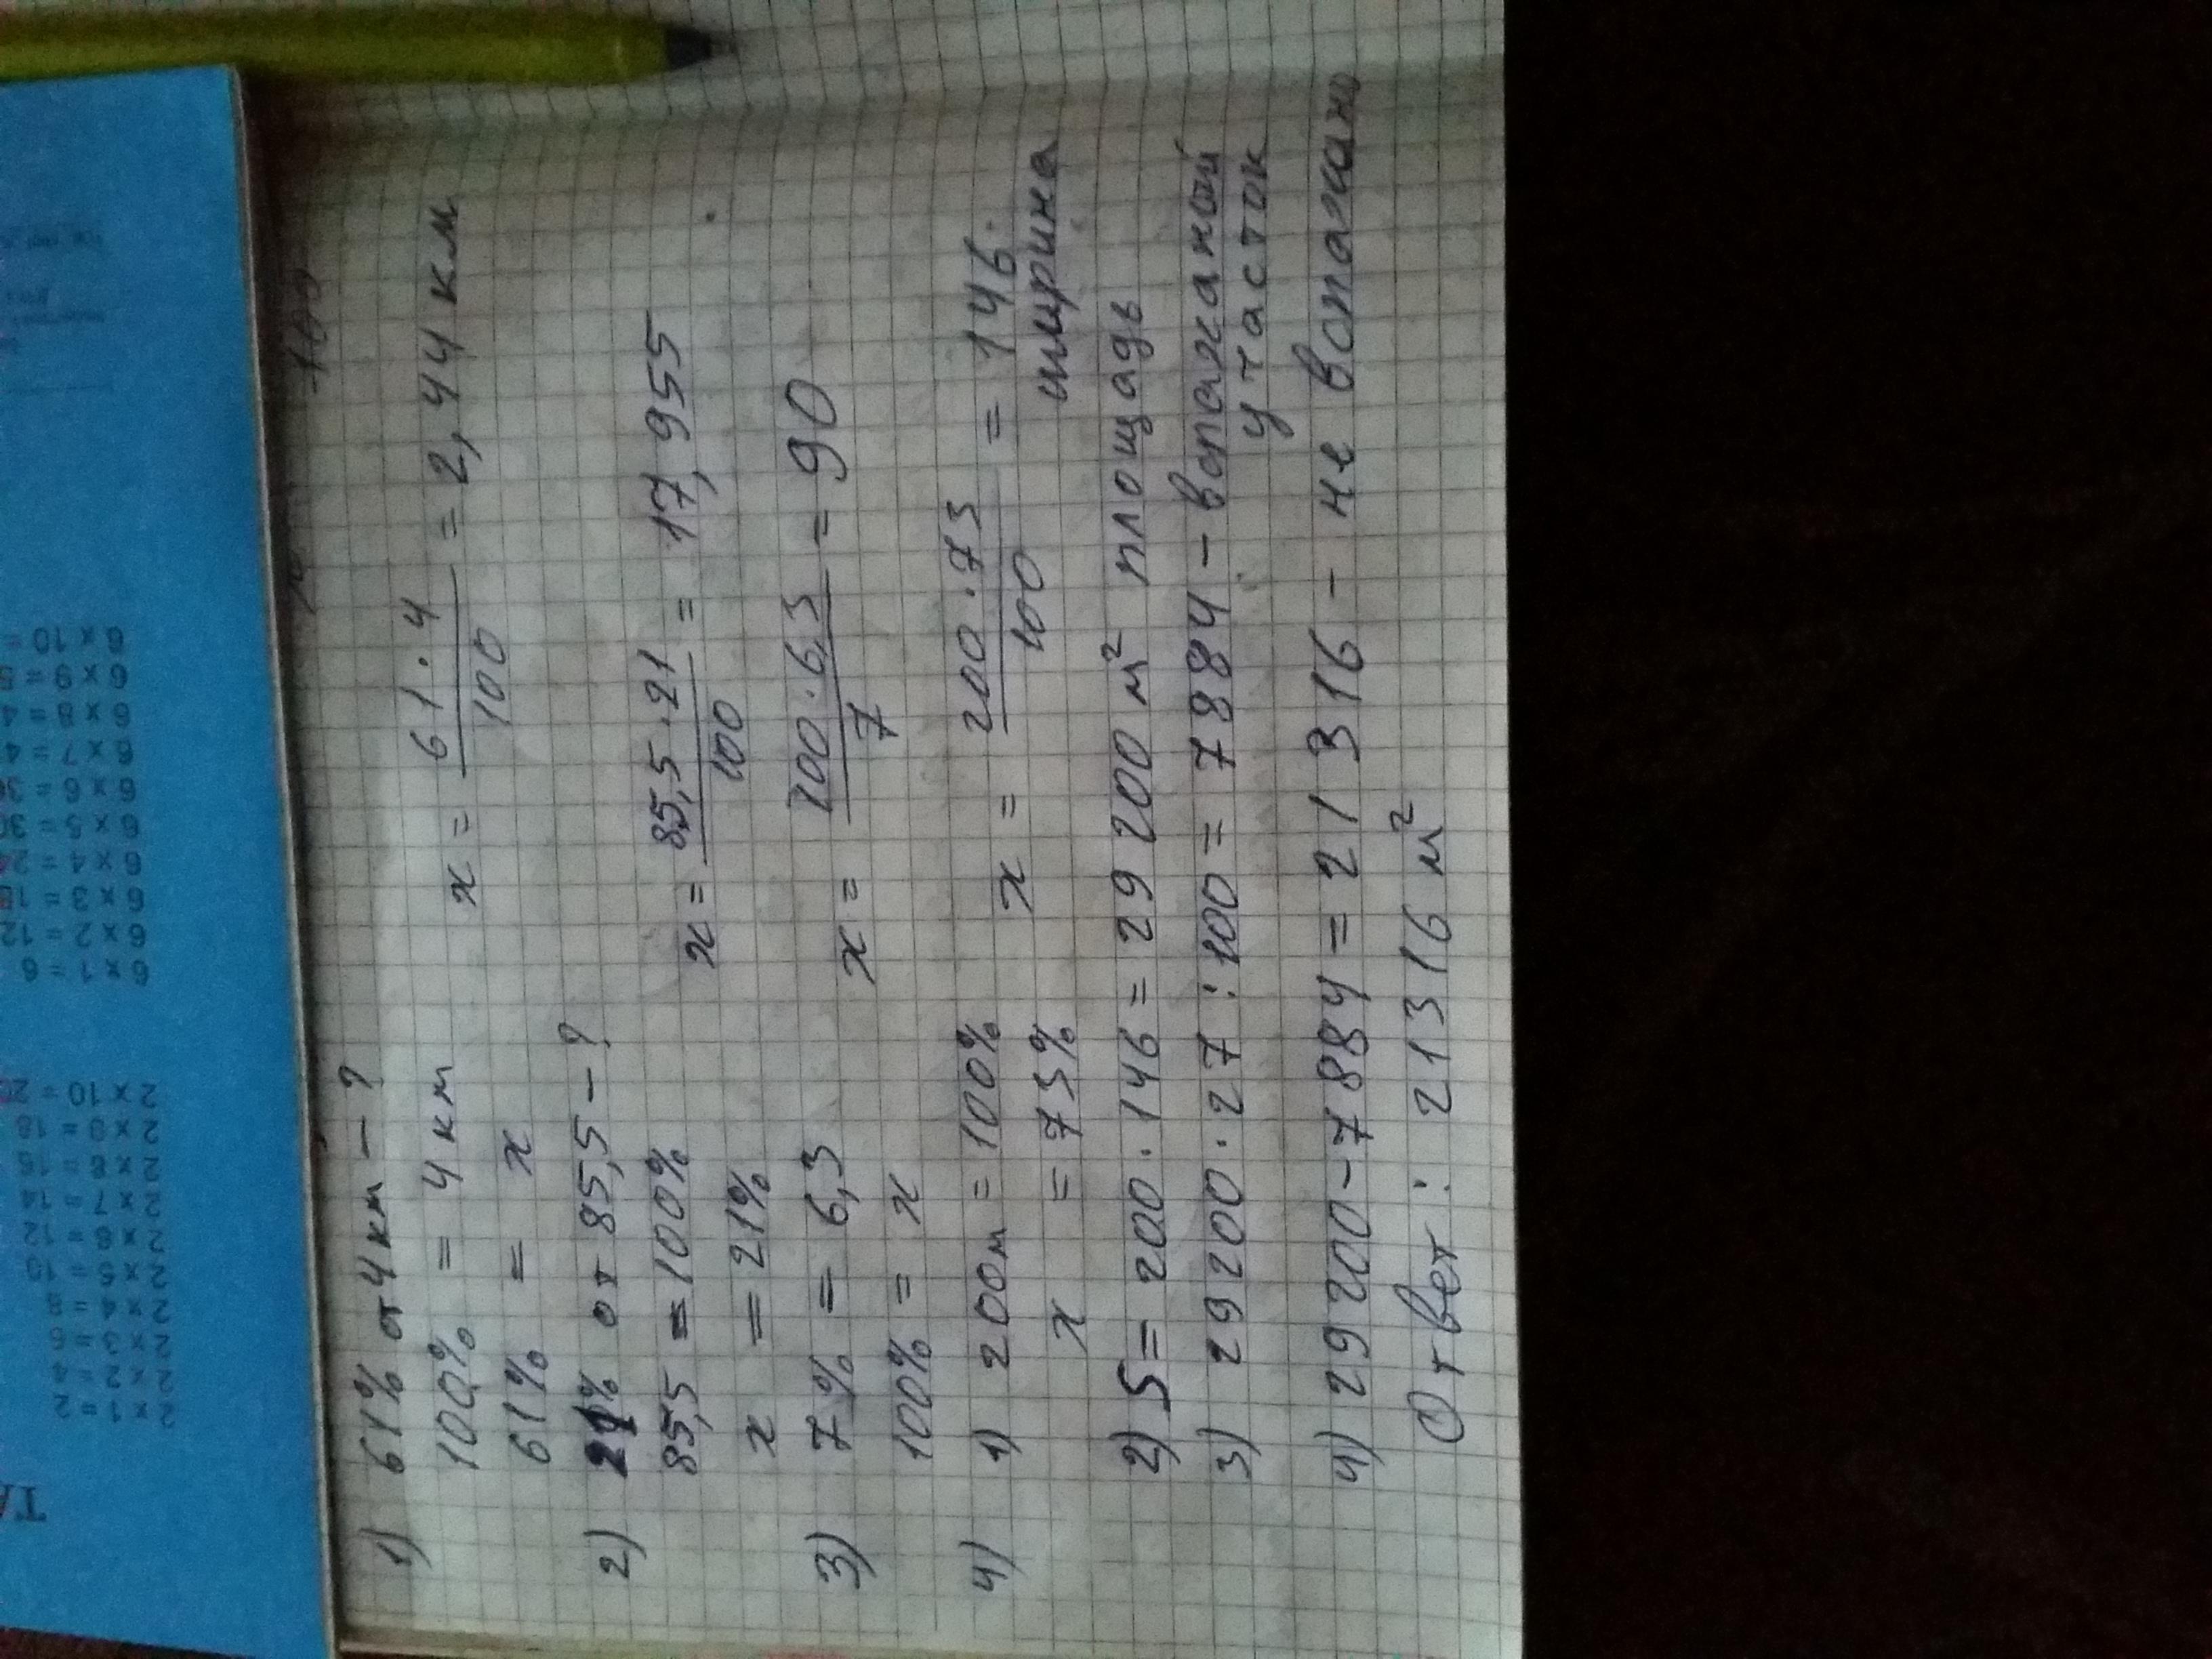 1) 61% от 4 км - ?
100% = 4 км
x = 61 · 4 / 100 = 2,44 км
61% = x
2) 21% от 85,5 - ?
85,5 = 100%
x = 85,5 · 21 / 100 = 17,955
x = 21%
3) 7% = 6,3
x = 100 · 6,3 / 7 = 90
100% = x
4) 1) 200м = 100%
x = 200 · 73 / 100 = 146
ширина
x = 73%
2) S = 200 · 146 = 29 200 м² площадь
3) 29200 · 27 : 100 = 7884 - вспаханый
участок
4) 29200 - 7884 = 21 316 - не вспахано
Ответ: 21316 м²
2 x 1 = 2
2 x 2 = 4
2 x 3 = 6
2 x 4 = 8
2 x 5 = 10
2 x 6 = 12
2 x 7 = 14
2 x 8 = 16
2 x 9 = 18
2 x 10 = 20
6 x 1 = 6
6 x 2 = 12
6 x 3 = 18
6 x 4 = 24
6 x 5 = 30
6 x 6 = 36
6 x 7 = 4
6 x 8 = 4
6 x 9 = 5
6 x 10 =